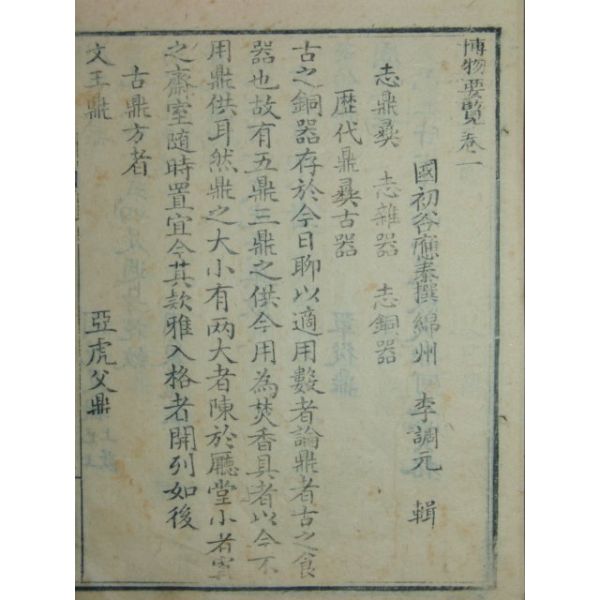 博物要覽卷一
國初谷應泰撰 綿州 李調元 輯
志鼎彝 志雜器 志銅器
歴代鼎彝古器
古之銅器存於今日聊以適用數者論鼎者古之食
器也故有五鼎三鼎之供今用為焚香具者以今不
用鼎供耳然鼎之大小有兩大者陳於廳堂小者寘
之齋室随時置宜今其款雅入格者開列如後
古鼎方者
文王鼎 亞虎父鼎